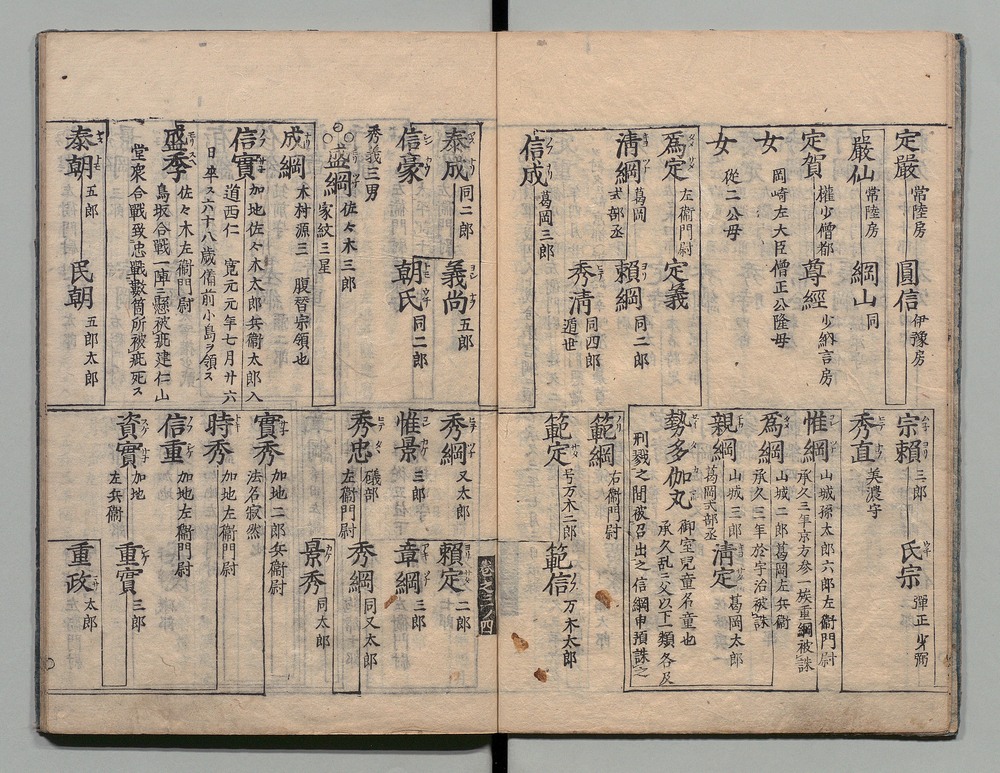 定嚴 常陸房 圓信 伊豫房
嚴仙 常陸房 綱山 同
定賀 權少僧都 尊經 少納言房
女 岡崎左大臣僧正公隆母
女 從二公母
爲定 左衞門尉 定義
淸綱 葛岡式部丞 賴綱 同二郎
秀淸 同四郎遁世
信成 葛岡三郎
宗賴 三郎 氏宗 彈正少弼
秀直 美濃守
惟綱 山城孫太郎六郎左衞門尉
承久三年京方参一族重綱被誅
爲綱 山城二郎葛岡左兵衞
承久三年於宇治被誅
親綱 山城三郎葛岡式部丞 淸定 葛岡太郎
勢多伽丸 御室兒童名童也
承久乱ニ父以下一類各及
刑戮之間被召出之信綱申預誅之
範綱 右衞門尉
範定 号万木二郎 範信 万木太郎
泰成 同二郎 義尚 五郎
信豪 朝氏 同二郎
秀義三男
盛綱 佐々木三郎
家紋三星
成綱 木村源三 腹替宗領也
信實 加地佐々木太郎兵衞太郎入
道西仁 寛元元年七月廿六
日卒ス六十八歳備前小島ヲ領ス
盛季 佐々木左衞門尉
鳥坂合戰一陣ニ懸被疵建仁山
堂衆合戰致忠戰數箇所被疵死ス
泰朝 五郎 民朝 五郎太郎
卷之十四
秀綱 又太郎 賴定 二郎
惟景 三郎 章綱 三郎
秀忠 礒部左衞門尉 秀綱 同又太郎
景秀 同太郎
實秀 加地二郎兵衞尉
法名寂然
時秀 加地左衞門尉
信重 加地左衞門尉
資實 加地左兵衞 重實 三郎
重政 太郎